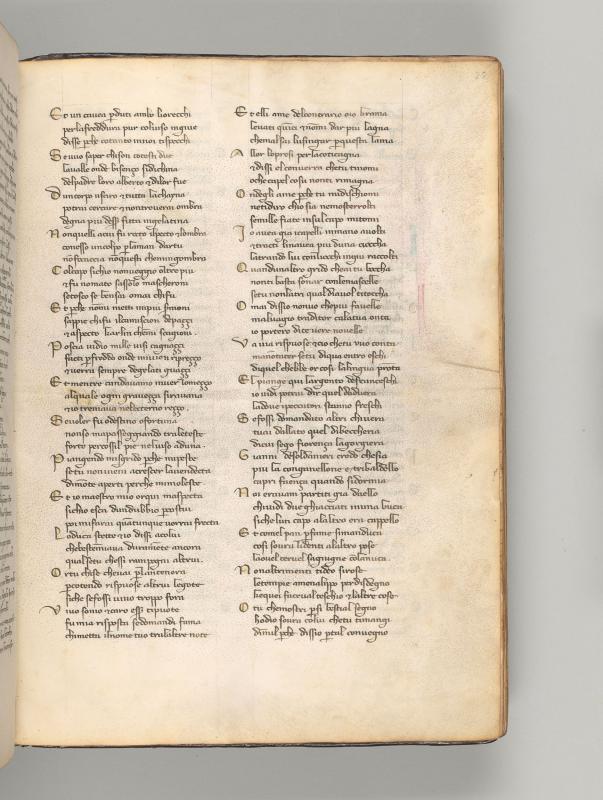 Et un cauea pduti ambo liorecchi
perlafreddura pur coluiso ingiue
disse pche cotanto innoi tispecchi
Se uuo saper chison cotesti due
laualle onde bisenço sidichina
delpadre loro alberto & dilor fue
Duncorpo usciro & tutta lachayna
potrai cercare & nontroverai ombra
degna piu desser fitta ingelatina
Nonquelli acui fu recto ilpecto & lombra
conesso uncolpo plaman dartu
nōfocaccia nōquesti chemingombra
Colcapo sichio nonueggio oltre piu
& fu nomato sassolo mascheroni
setosco se bensai omai chifu
Et pche nōmi metti inpiu sermoni
sappie chifu ilcamiscion depaççi
& aspecto karlin chemi scagioni
Poscia uidio mille uisi cagnaçi
facti pfreddo onde miuien ripreço
& uerra sempre degelati guaççi
Et mentre candauamo inuer lomeçço
alquale ogni graueçça siraduna
& io tremaua neleterno reçço
Seuoler fu odestino ofortuna
nonso mapasseggiando tralateste
forte percossil pie neluiso aduna
Piangendo misgrido pche mipeste
se tu nonuieni acrescer lauendecta
dimōte aperti perche mimoleste
Et io maestro mio orqui maspecta
sichio esca dundubbio pcostui
poi mifarai quatunque uorrai frecta
Loduca stette & io dissi acolui
chebestemiaua duramēte ancora
qual setu chessi rampogni altrui
Ortu chise cheuai plantenora
pcotendo rispuose altrui legote
siche sefossi uiuo troppo fora
Viuo sono & caro esser tipuote
fu mia risposta sedomandi fama
chimetta ilnome tuo tralaltre note
Et elli ame delcontrario oio brama
leuati quici & nōmi dar piu lagna
chemal sai lusingar pquesta lama
Allor lopresi perlacoticagna
& dissi el conuerra chetu tinomi
oche capel qui su nonti rimagna
Ondegli ame pche tu midischiomi
netidiro chio sia nemosterrolti
semille fiate insul capo mitomi
Io auea gia icapelli inmano auolti
& tracti linauea piu duna ciocha
latrando lui conliocchi ingiu raccolti
Quandunaltro grido cheai tu bocha
nonti basta sonar conlemascelle
setu nonlatri qual diauol titoccha
Omai dissio nonuo chepiu fauelle
maluagio traditor calatua onta
io portero dite uere nouelle
Va uia rispuose & cio chetu uuoi conta
manontacer setu diqua entro eschi
diquel chebbe or cosi lalingua pronta
El piange qui largento defranceschi
io uidi potrai dir quel daduera
ladoue ipeccatori stanno freschi
Se fossi domandato altri chiuera
tuai dallato quel dibeccheria
dicui sego fiorença lagorgiera
Gianni desoldanieri credo chesia
piu la conganellone & tribaldello
capri faença quando sidormia
Noi erauam partiti gia daello
chiuidi due ghiacciati inuna buca
siche lun capo alaltro era cappello
Et comel pan pfame simanduca
cosi sourā lidenti alaltro pose
laouel ceruel sagiugne colanuca
Nonaltrimenti tideo sirose
letempie amenalippo perdisdegno
chequei faceual teschio & laltre cose
Otu chemostri psi bestial segno
hodio soura colui chetu timangi
dimmil pche dissio ptal conuegno